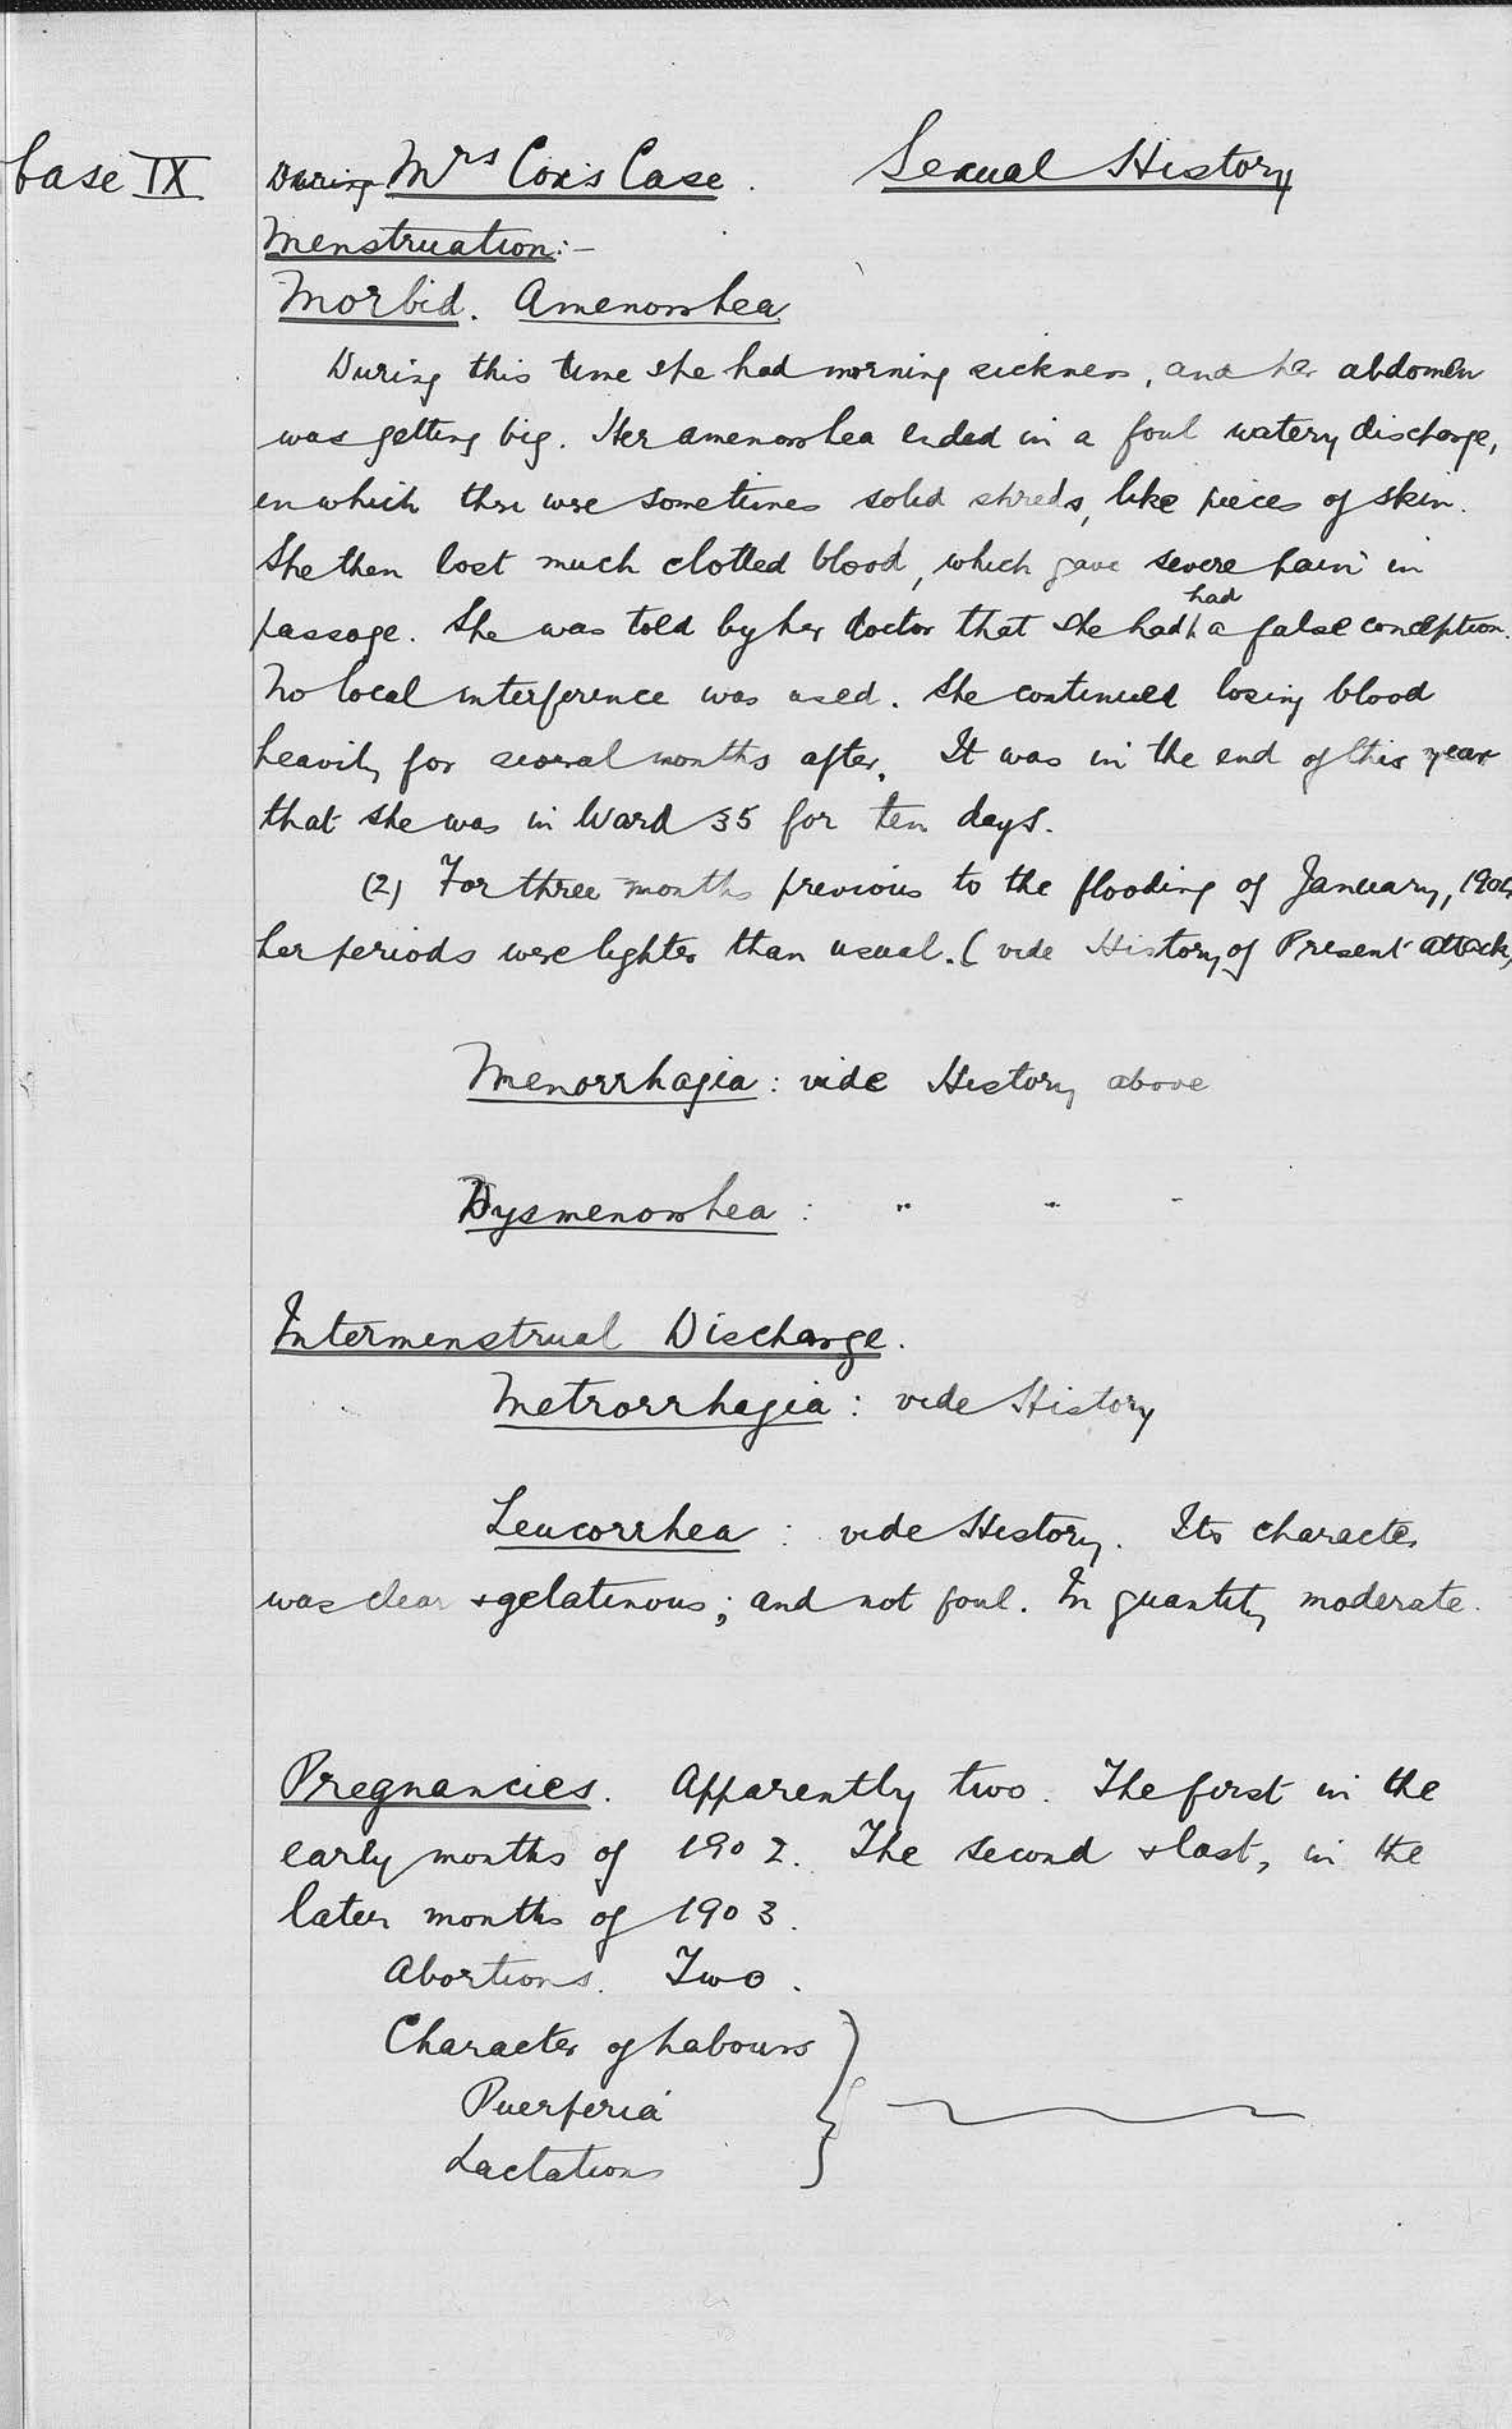 Case IX
During Mrs Cox's Case. Sexual History
Menstruation:-
Morbid. Amenorrhea
During this time she had morning sickness, and her abdomen
was getting big. Her amenorrhea ended in a foul watery discharge,
in which there were sometimes solid shreds, like pieces of skin.
She then lost much clotted blood, which gave severe pain in
passage. She was told by her doctor that she had had a false conception.
No local interference was used. She continued losing blood
heavily for several months after. It was in the end of this year
that she was in Ward 35 for ten days.
(2) For three months previous to the flooding of January, 1904
her periods were lighter than usual. (vide History of Present attack)
Menorrhagia: vide History above
Dysmenorrhea: " " "
Intermenstrual Discharge.
Metrorrhagia: vide History
Leucorrhea: vide History. Its character
was clear & gelatinous; and not foul. In quantity moderate.
Pregnancies. Apparently two. The first in the
early months of 1902. The second & last, in the
later months of 1903.
Abortions. Two.
Character of Labours
Puerperia
Lactations